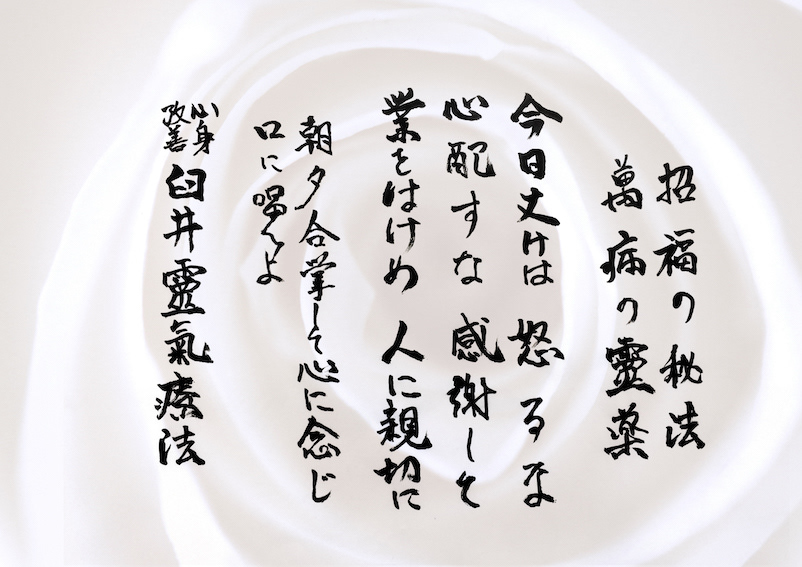 招福の秘法
萬病の靈薬
今日丈けは 怒るな
心配すな 感謝して
業をはけめ 人に親切に
朝夕合掌して心に念じ
口に唱へよ
心身
改善
臼井靈氣療法